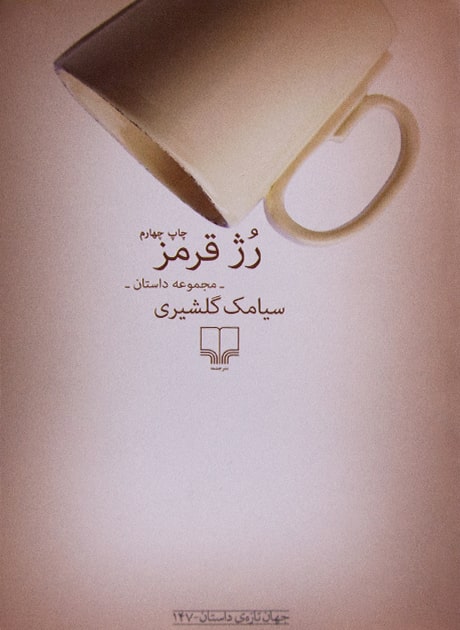 چاپ چهارم
رُژ قرمز
- مجموعه داستان -
سیامک گلشیری
نشر چشمه
جهان تازه‌ی داستان - ۱۴۷